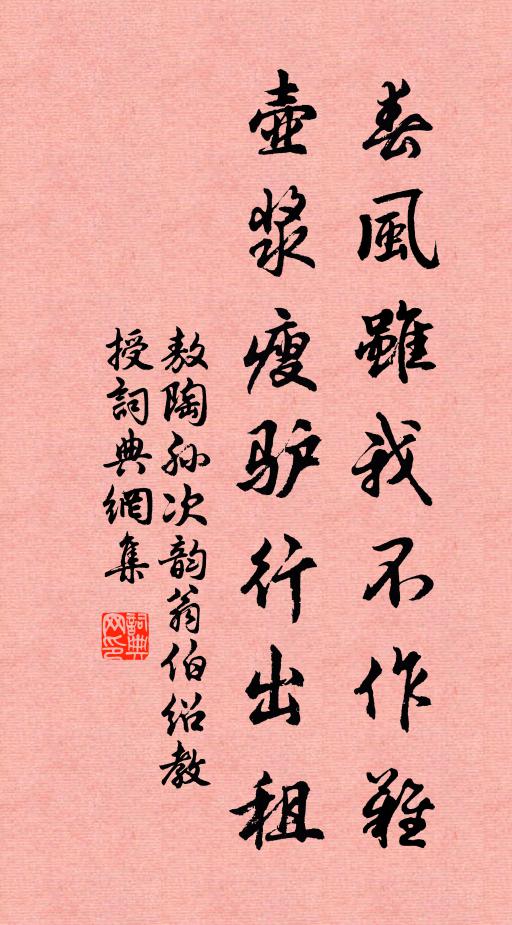 春風雖我不作難
壺漿瘦驴行出租
敖陶孙次韵翁伯绍教
授詞典網集
詞典网印